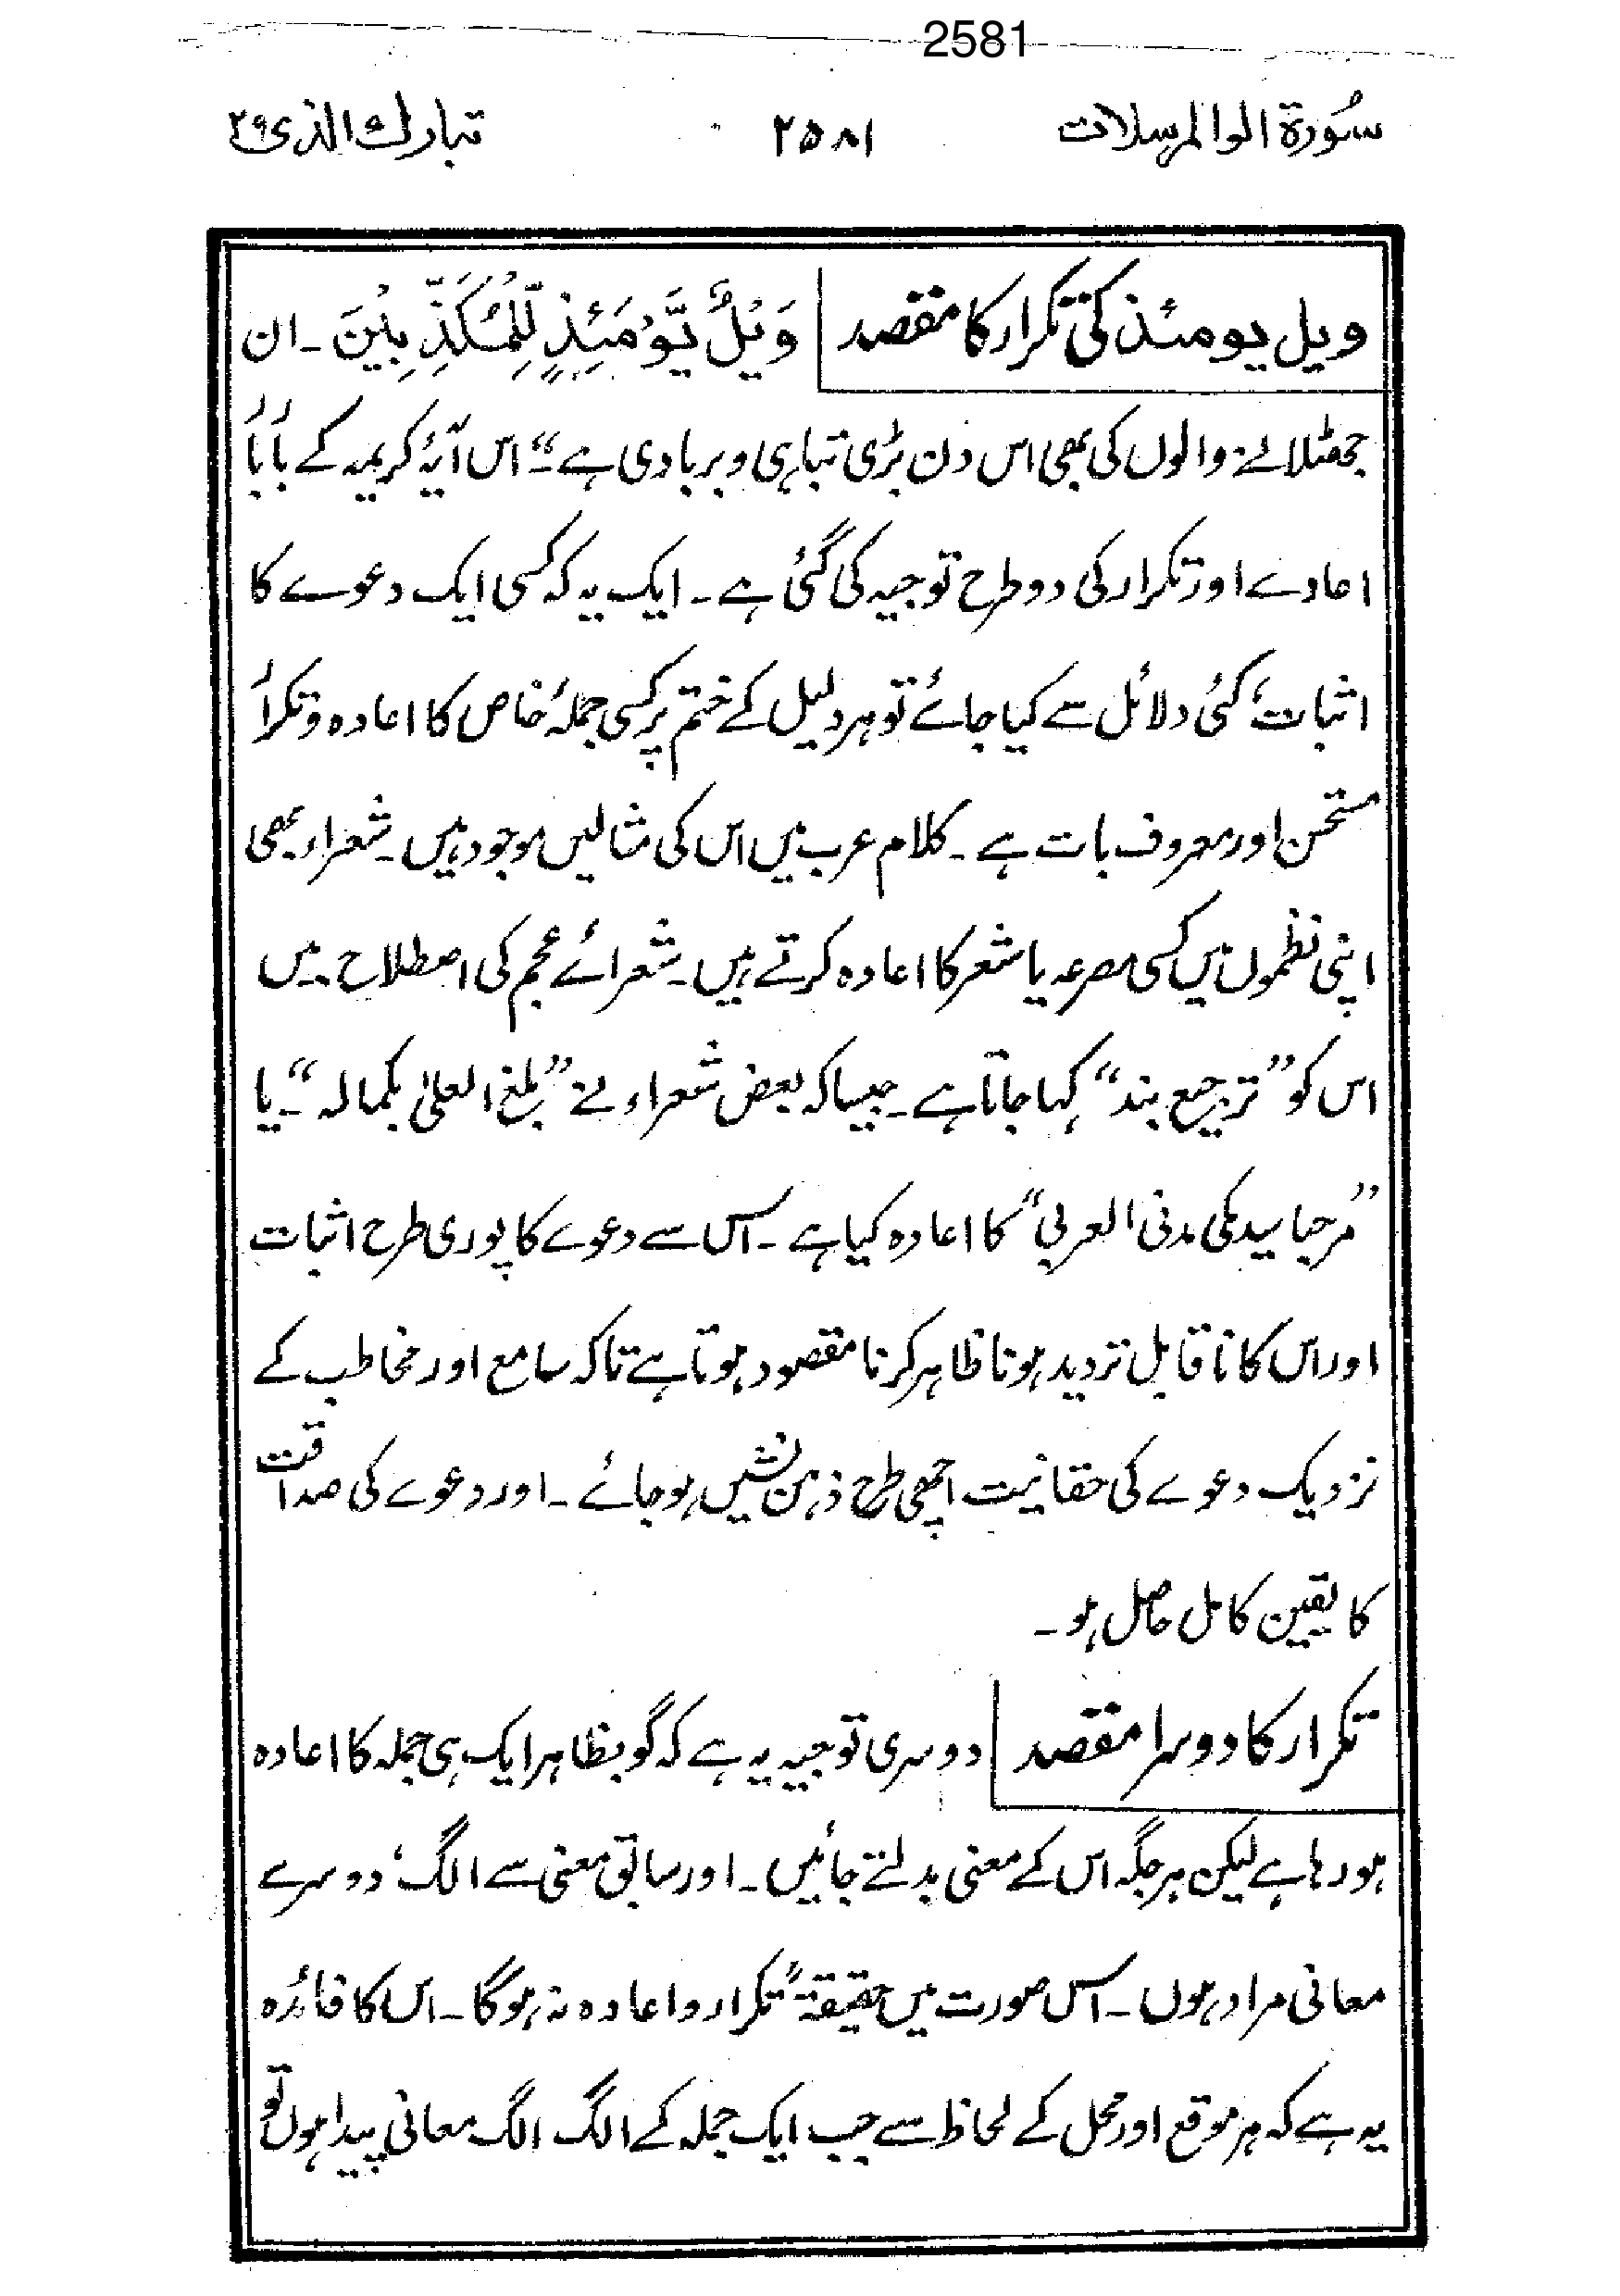 2581
سُورۃ الوالمرسلات ۲۵۸۱ تبارك الذی ۲۹
ویل یومئذ کی تکرار کا مقصد وَیْلٌ یَّوْمَئِذٍ لِّلْمُکَذِّبِیْنَ ۔ ان
جھٹلانے والوں کی بھی اس دن بڑی تباہی و بربادی ہے“۔ اس آیۂ کریمہ کے بابار
اعادے اور تکرار کی دو طرح توجیہ کی گئی ہے ۔ ایک یہ کہ کسی ایک دعوے کا
اثبات، کئی دلائل سے کیا جائے تو ہر دلیل کے ختم پر کسی جملۂ خاص کا اعادہ و تکرار
مستحسن اور معروف بات ہے ۔ کلام عرب میں اس کی مثالیں موجود ہیں ۔ شعراء بھی
اپنی نظموں میں کسی مصرعہ یا شعر کا اعادہ کرتے ہیں ۔ شعرائے عجم کی اصطلاح میں
اس کو ”ترجیع بند“ کہا جاتا ہے ۔ جیسا کہ بعض شعراء نے ”بلغ العلیٰ بکمالہ“ ۔ یا
”مرحبا سید مکی مدنی العربی“ کا اعادہ کیا ہے ۔ اس سے دعوے کا پوری طرح اثبات
اور اس کا ناقابل تردید ہونا ظاہر کرنا مقصود ہوتا ہے تاکہ سامع اور مخاطب کے
نزدیک دعوے کی حقانیت اچھی طرح ذہن نشیں ہو جائے ۔ اور دعوے کی صداقت
کا یقین کامل حاصل ہو ۔
تکرار کا دوسرا مقصد دوسری توجیہ یہ ہے کہ گو بظاہر ایک ہی جملہ کا اعادہ
ہو رہا ہے لیکن ہر جگہ اس کے معنی بدلتے جائیں ۔ اور سابق معنی سے الگ، دوسرے
معانی مراد ہوں ۔ اس صورت میں حقیقۃً تکرار و اعادہ نہ ہوگا ۔ اس کا فائدہ
یہ ہے کہ ہر موقع اور محل کے لحاظ سے جب ایک جملہ کے الگ الگ معانی پیدا ہوں تو